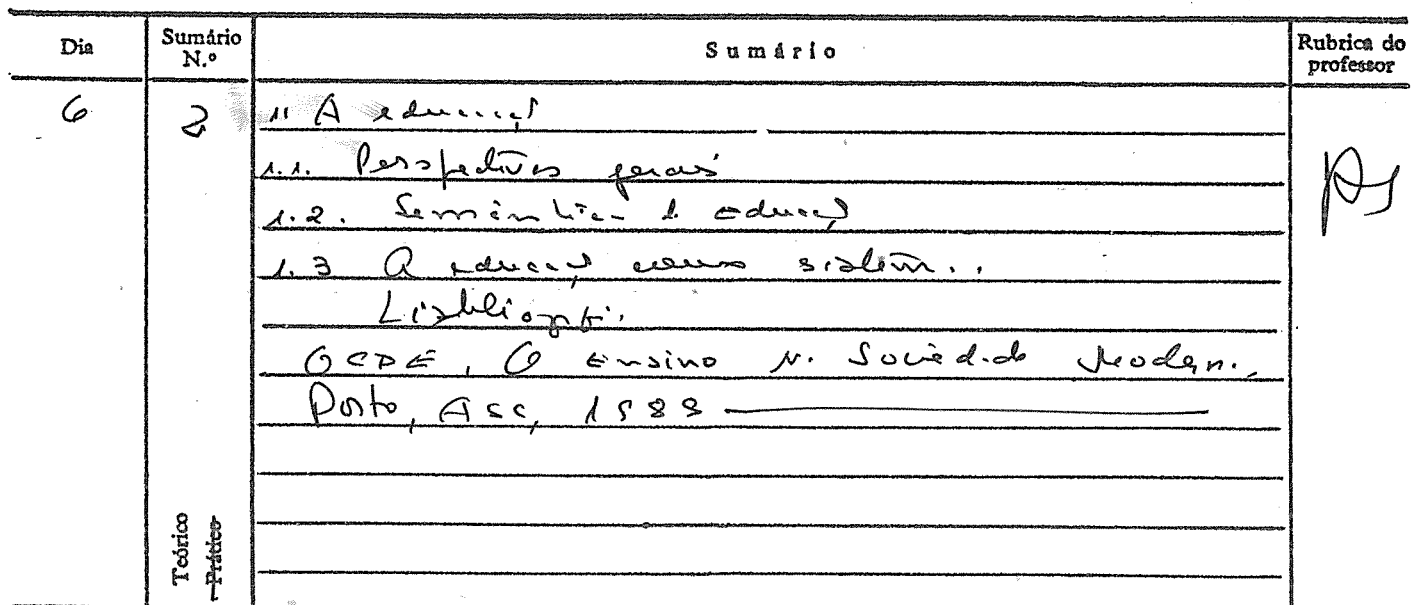 Dia Sumário N.º Sumário Rubrica do professor
6 2 1. A educaç
1.1. Perspectivas gerais
1.2. Semântica d educaç
1.3 A educaç como sistem..
OCDE, O Ensino N. Sociedade Modern.,
Porto, Asa, 1989
Teórico
Prático